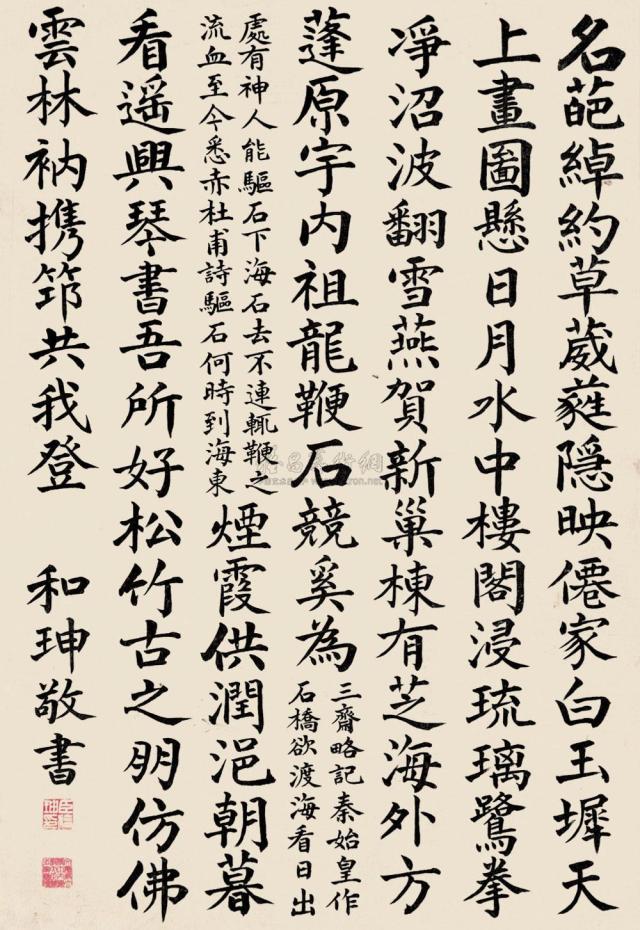 名葩綽約草葳蕤隱映僊家白玉墀天
上畫圖懸日月水中樓閣浸琉璃鷺拳
凈沼波翻雪燕賀新巢棟有芝海外方
蓬原宇內祖龍鞭石競奚為
三齋略記秦始皇作
石橋欲渡海看日出
處有神人能驅石下海石去不連輒鞭之
流血至今悉赤杜甫詩驅石何時到海東
煙霞供潤浥朝暮
看遥興琴書吾所好松竹古之朋仿佛
雲林衲携筇共我登
和珅敬書